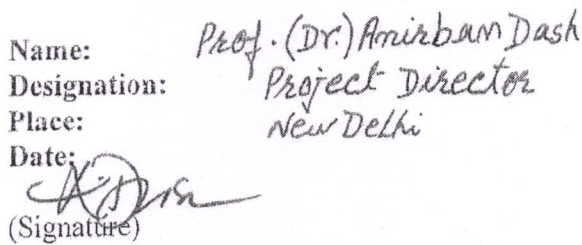 Name: Prof. (Dr.) Anirban Dash
Designation: Project Director
Place: New Delhi
Date:
(Signature)